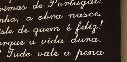 rimas de Portugal.
nho, a obra nasce,
ale de quem é feliz,
orque a vida dura.
Tudo vale a pena